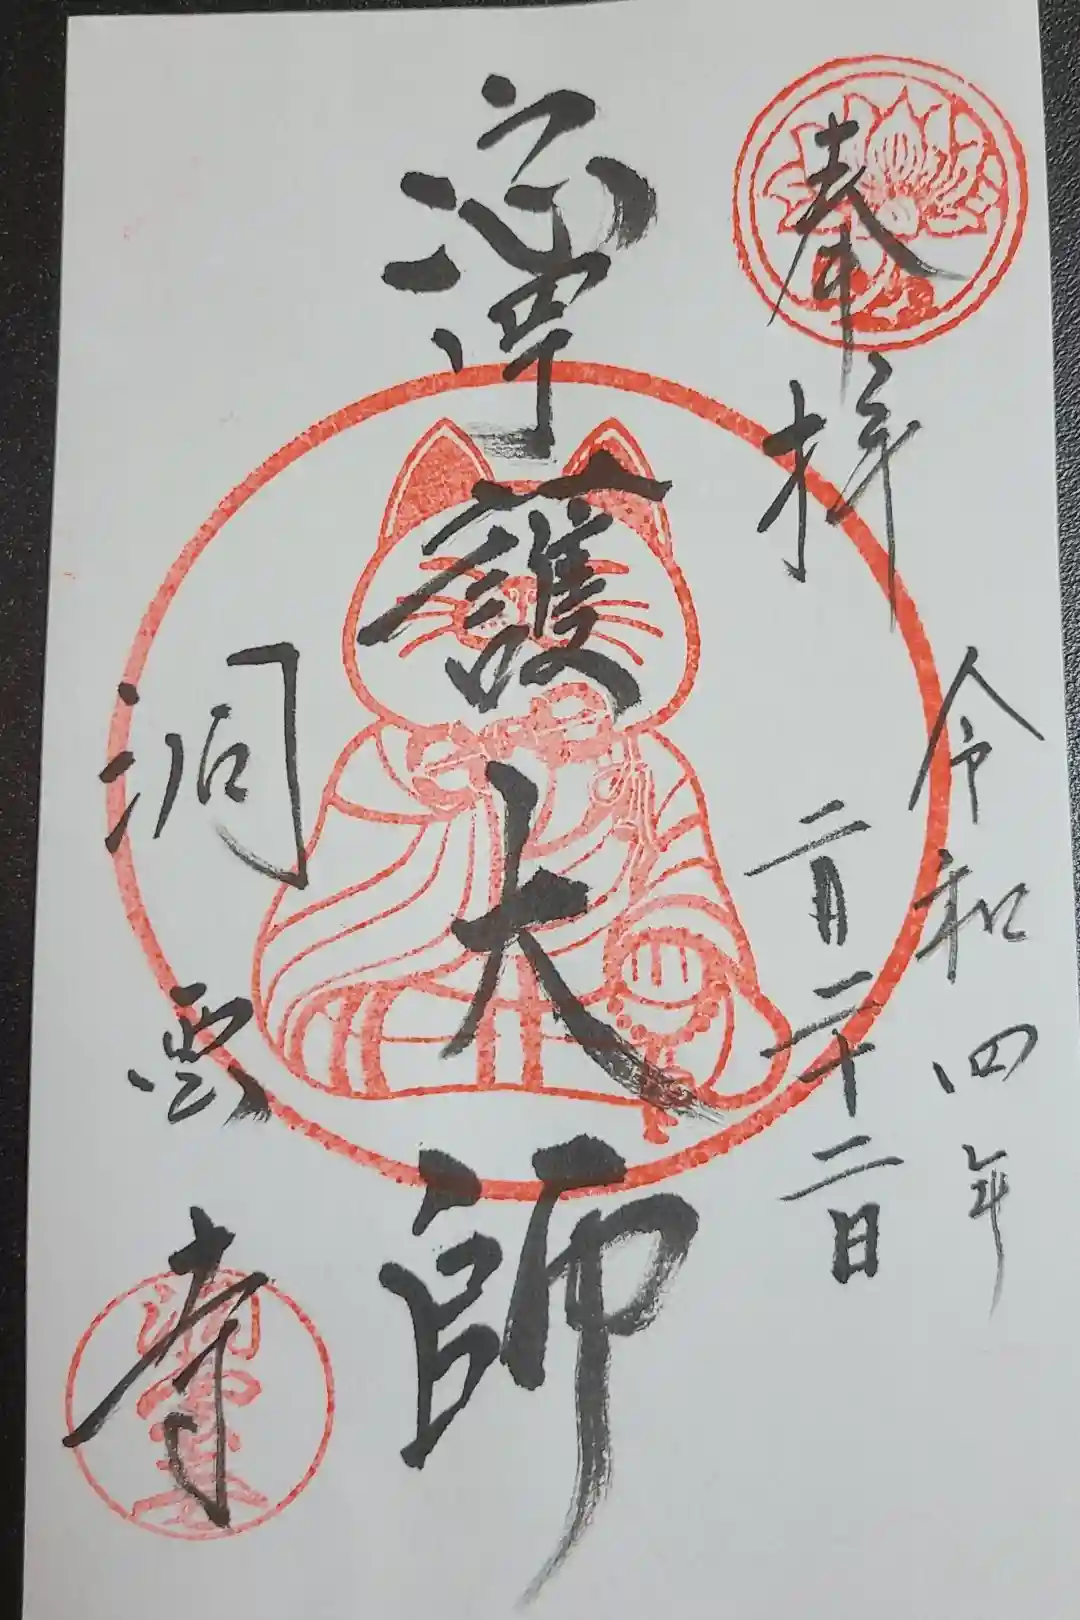 奉拝
令和四年
二月二十二日
寧護大師
洞雲寺